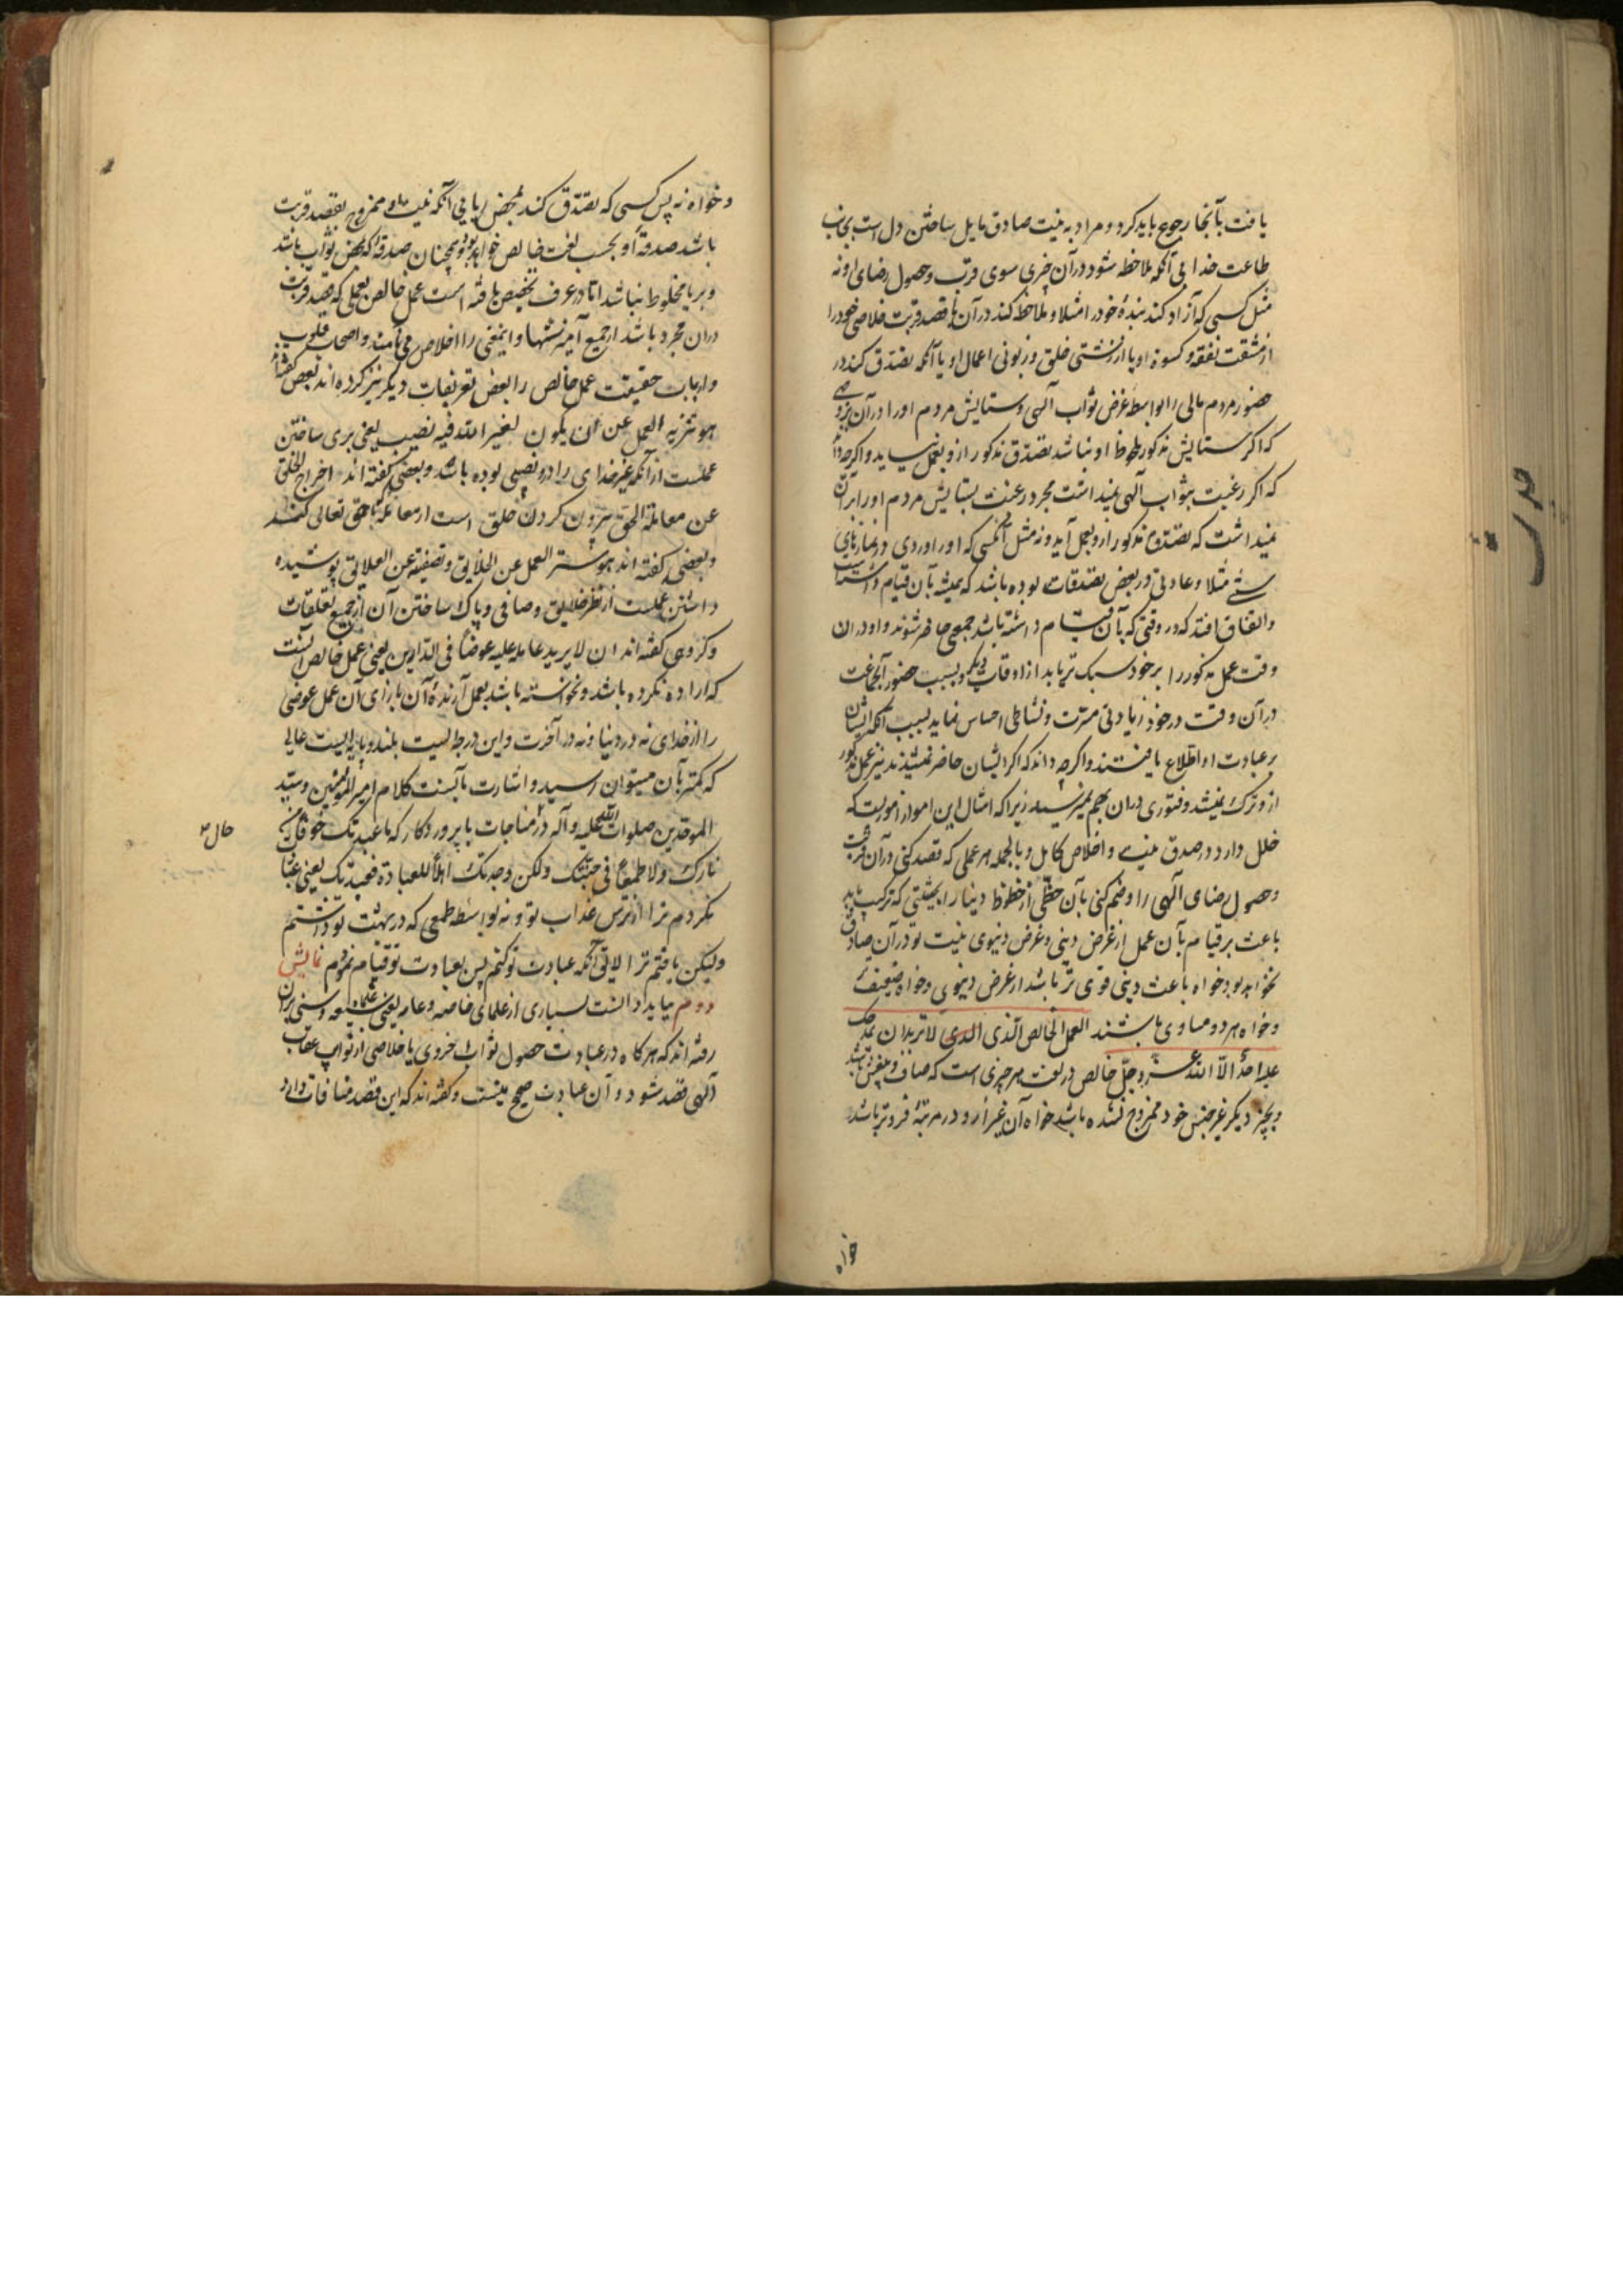 یافت بآنجا رجوع باید کرد و مراد به نیت صادق مایل ساختن دل است بجانب
طاعت خدا بی آنکه ملاحظه شود در آن چیزی سوی قرب و حصول رضای او نه
مثل کسی که آزاد کند بندهٔ خود را مثلا و ملاحظه کند در آن با قصد قربت خلاصی خود را
از مشقت نفقه و کسوهٔ او یا از زشتی خلق و زبونی اعمال او یا آنکه تصدق کند در
حضور مردم مالی را بواسطه غرض ثواب آلهی و ستایش مردم او را در آن
که اکر ستایش مذکور ملحوظ او نباشد تصدق مذکور ازو بعمل نیاید و اکرچه
که اکر رغبت بثواب آلهی نمیداشت مجرد رغبت بستایش مردم او را بر آن
نمیداشت که تصدق مذکور ازو بعمل آید و نه مثل آنکسی که او را وردی در نمازهای
مثلا و عادتی در بعض تصدقات بوده باشد که همیشه بآن قیام
و اتفاق افتد که در وقتی که بآن قیام داشته باشد جمعی حاضر شوند و او در آن
وقت عمل مذکور را بر خود سبک تر یابد از اوقات دیگر و بسبب حضور آنجماعت
در آن وقت در خود زیادتی مسرت و نشاطی احساس نماید بسبب آنکه ایشان
بر عبادت او اطلاع یافتند و اکرچه داند که اکر ایشان حاضر نمیشدند نیز عمل مذکور
ازو ترک نمیشد و فتوری در آن بهم نمیرسید زیرا که امثال این امور از اموریست که
خلل دارد در صدق نیت و اخلاص کامل و بالجمله هر عملی که قصد کنی در آن قربت
و حصول رضای آلهی را و ضم کنی بآن حظی از حظوظ دنیا را بحیثیتی که ترکیب یابد
باعث بر قیام بآن عمل از غرض دینی و غرض دنیوی نیت تو در آن صادق
نخواهد بود خواه باعث دینی قوی تر باشد از غرض دنیوی و خواه ضعیف
و خواه هر دو مساوی باشند العمل الخالص الذی الذی لا ترید ان یمدحک
علیه احد الا الله عز و جل خالص در لغت هر چیزی است که صاف و بیغش باشد
و بچیز دیگر غیر جنس خود ممزوج نشده باشد خواه آن غیر ازو در مرتبه فروتر باشد
خواه
و خواه نه پس کسی که تصدق کند بمحض ریا بی آنکه نیت او ممزوج بقصد قربت
باشد صدقه او بحسب لغت خالص خواهد بود همچنان صدقه که بمحض ثواب باشد
و بریا مخلوط نباشد اما در عرف تخصیص یافته است عمل خالص بعملی که قصد قربت
در آن مجرد باشد از جمیع آمیزشها و اینمعنی را اخلاص می نامند و اصحاب قلوب
حقیقت عمل خالص را بعض تعریفات دیگر نیز کرده اند بعض گفته اند
هو تنزیه العمل عن ان یکون لغیر الله فیه نصیب یعنی بری ساختن
عملست از آنکه غیر خدای را درو نصیبی بوده باشد و بعضی گفته اند اخراج الخلق
عن معاملة الحق بیرون کردن خلق است از معامله که با حق تعالی کنند
و بعضی گفته اند هو ستر العمل عن الخلایق و تصفیته عن العلایق پوشیده
داشتن عملست از نظر خلایق و صافی و پاک ساختن آن از جمیع تعلقات
و گروهی گفته اند ان لا یرید عامله علیه عوضا فی الدارین یعنی عمل خالص آنست
که اراده نکرده باشد و نخواسته باشد بعمل آرندهٔ آن بازای آن عمل عوضی
را از خدای نه در دنیا و نه در آخرت و این درجه ایست بلند و پایه ایست عالی
که کمتر بآن میتوان رسید و اشارت بآنست کلام امیر المؤمنین و سید
الموحدین صلوات الله علیه و آله در مناجات با پروردکار که ما عبدتک خوفا من
نارک و لا طمعا فی جنتک ولکن وجدتک اهلا للعبادة فعبدتک یعنی عبادت
نکردم ترا از ترس عذاب تو و نه بواسطه طمعی که در بهشت تو داشتم
ولیکن یافتم ترا لایق آنکه عبادت تو کنم پس بعبادت تو قیام نمودم نمایش
دوم بباید دانست بسیاری از علمای خاصه و عامه یعنی علماء شیعه و سنی بر آن
رفته اند که هرکاه در عبادت حصول ثواب اخروی یا خلاصی از عقاب
آلهی قصد شود آن عبادت صحیح نیست و گفته اند که این قصد منافات دارد
حال